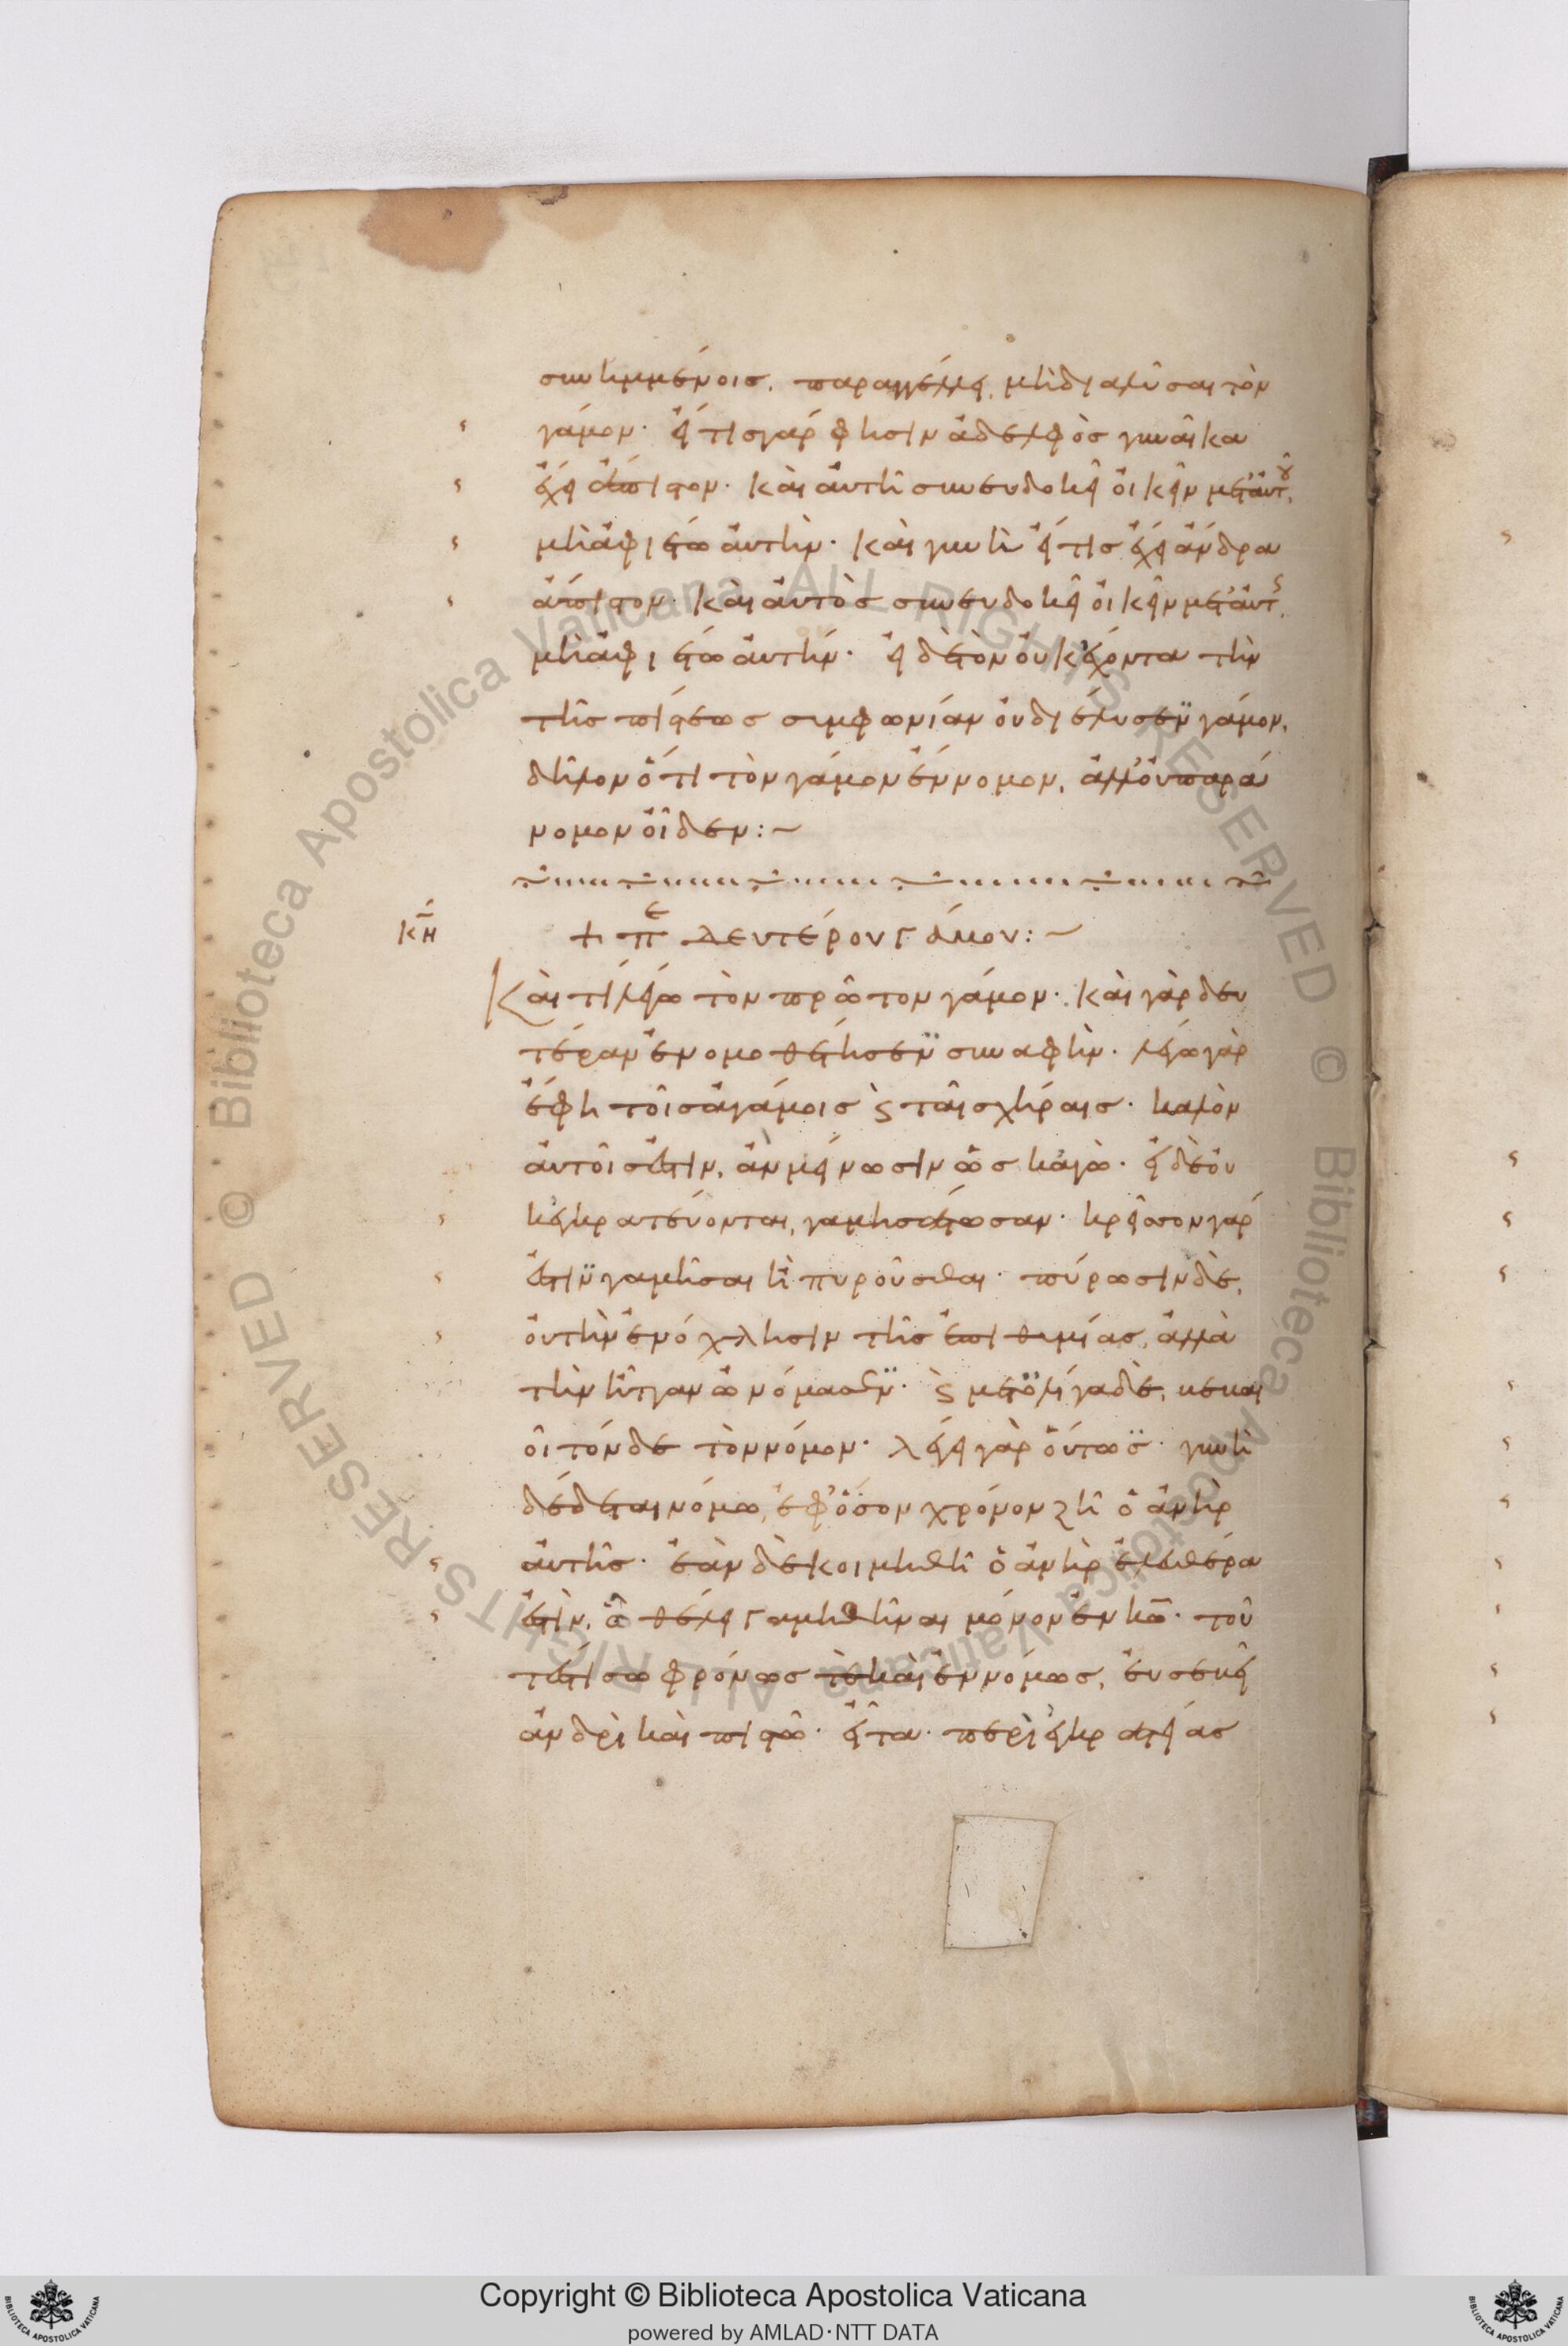 συνημμένοις, παραγγέλλει, μὴ διαλῦσαι τὸν
γάμον· εἴ τις γάρ φησιν ἀδελφὸς γυναῖκα
ἔχει ἄπιστον· καὶ αὐτὴ συνευδοκεῖ οἰκεῖν μετ' αὐτοῦ,
μὴ ἀφιέτω αὐτὴν· καὶ γυνὴ εἴ τις ἔχει ἄνδρα
ἄπιστον· καὶ αὐτὸς συνευδοκεῖ οἰκεῖν μετ' αὐτῆς,
μὴ ἀφιέτω αὐτήν· εἰ δὲ τὸν οὐκ ἔχοντα τὴν
τῆς πίστεως συμφωνίαν οὐ διέλυσεν γάμον,
δῆλον ὅτι τὸν γάμον ἔννομον, ἀλλ' οὐ παρά
νομον οἶδεν:~
κη
+ πε δευτέρου γάμου:~
Καὶ τί λέγω τὸν πρῶτον γάμον· καὶ γὰρ δευ
τέραν ἐνομοθέτησεν συναφὴν· λέγω γὰρ
ἔφη τοῖς ἀγάμοις ϗ ταῖς χήραις· καλὸν
αὐτοῖς ἐστιν, ἂν μείνωσιν ὡς κἀγὼ· εἰ δὲ οὐ
κ ἐγκρατεύονται, γαμησάτωσαν· κρεῖσσον γάρ
ἐστιν γαμῆσαι ἢ πυροῦσθαι· πύρωσιν δὲ,
οὐ τὴν ἐνόχλησιν τῆς ἐπιθυμίας, ἀλλὰ
τὴν ἧτταν ὠνόμασεν· ϗ μετ' ὀλίγα δὲ, κεκαι
οῖ τόνδε τὸν νόμον· λέγει γὰρ οὕτως· γυνὴ
δέδεται νόμω, ἐφ' ὅσον χρόνον ζῆ ὁ ἀνὴρ
αὐτῆς· ἐὰν δὲ κοιμηθῆ ὁ ἀνὴρ ἐλευθέρα
ἐστὶν, ᾧ θέλει γαμηθῆναι μόνον ἐν κω· τοῦ
τέστι σωφρόνως τὲ καὶ ἐννόμως, εὐσεβεῖ
ἀνδρὶ καὶ πιστῶ· εἶτα· περὶ ἐγκρατείας
Copyright © Biblioteca Apostolica Vaticana
powered by AMLAD·NTT DATA